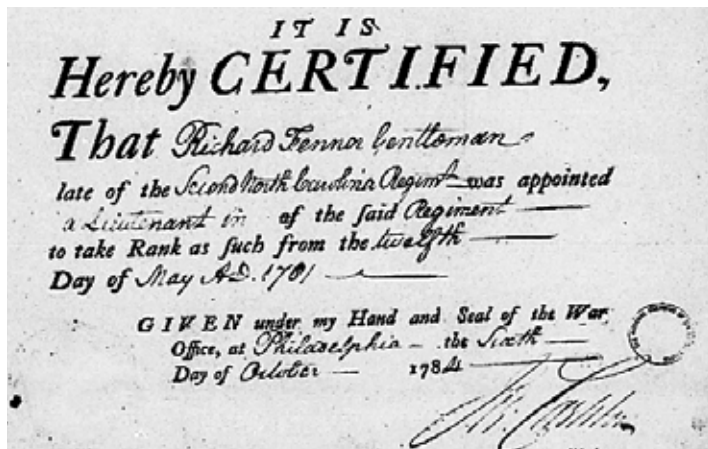 IT IS
Hereby CERTIFIED,
That Richard Fenner Gentleman
late of the Second North Carolina Regimt was appointed
a Lieutenant in of the said Regiment
to take Rank as such from the twelfth
Day of May AD. 1781
GIVEN under my Hand and Seal of the War
Office, at Philadelphia the Sixth
Day of October 1784